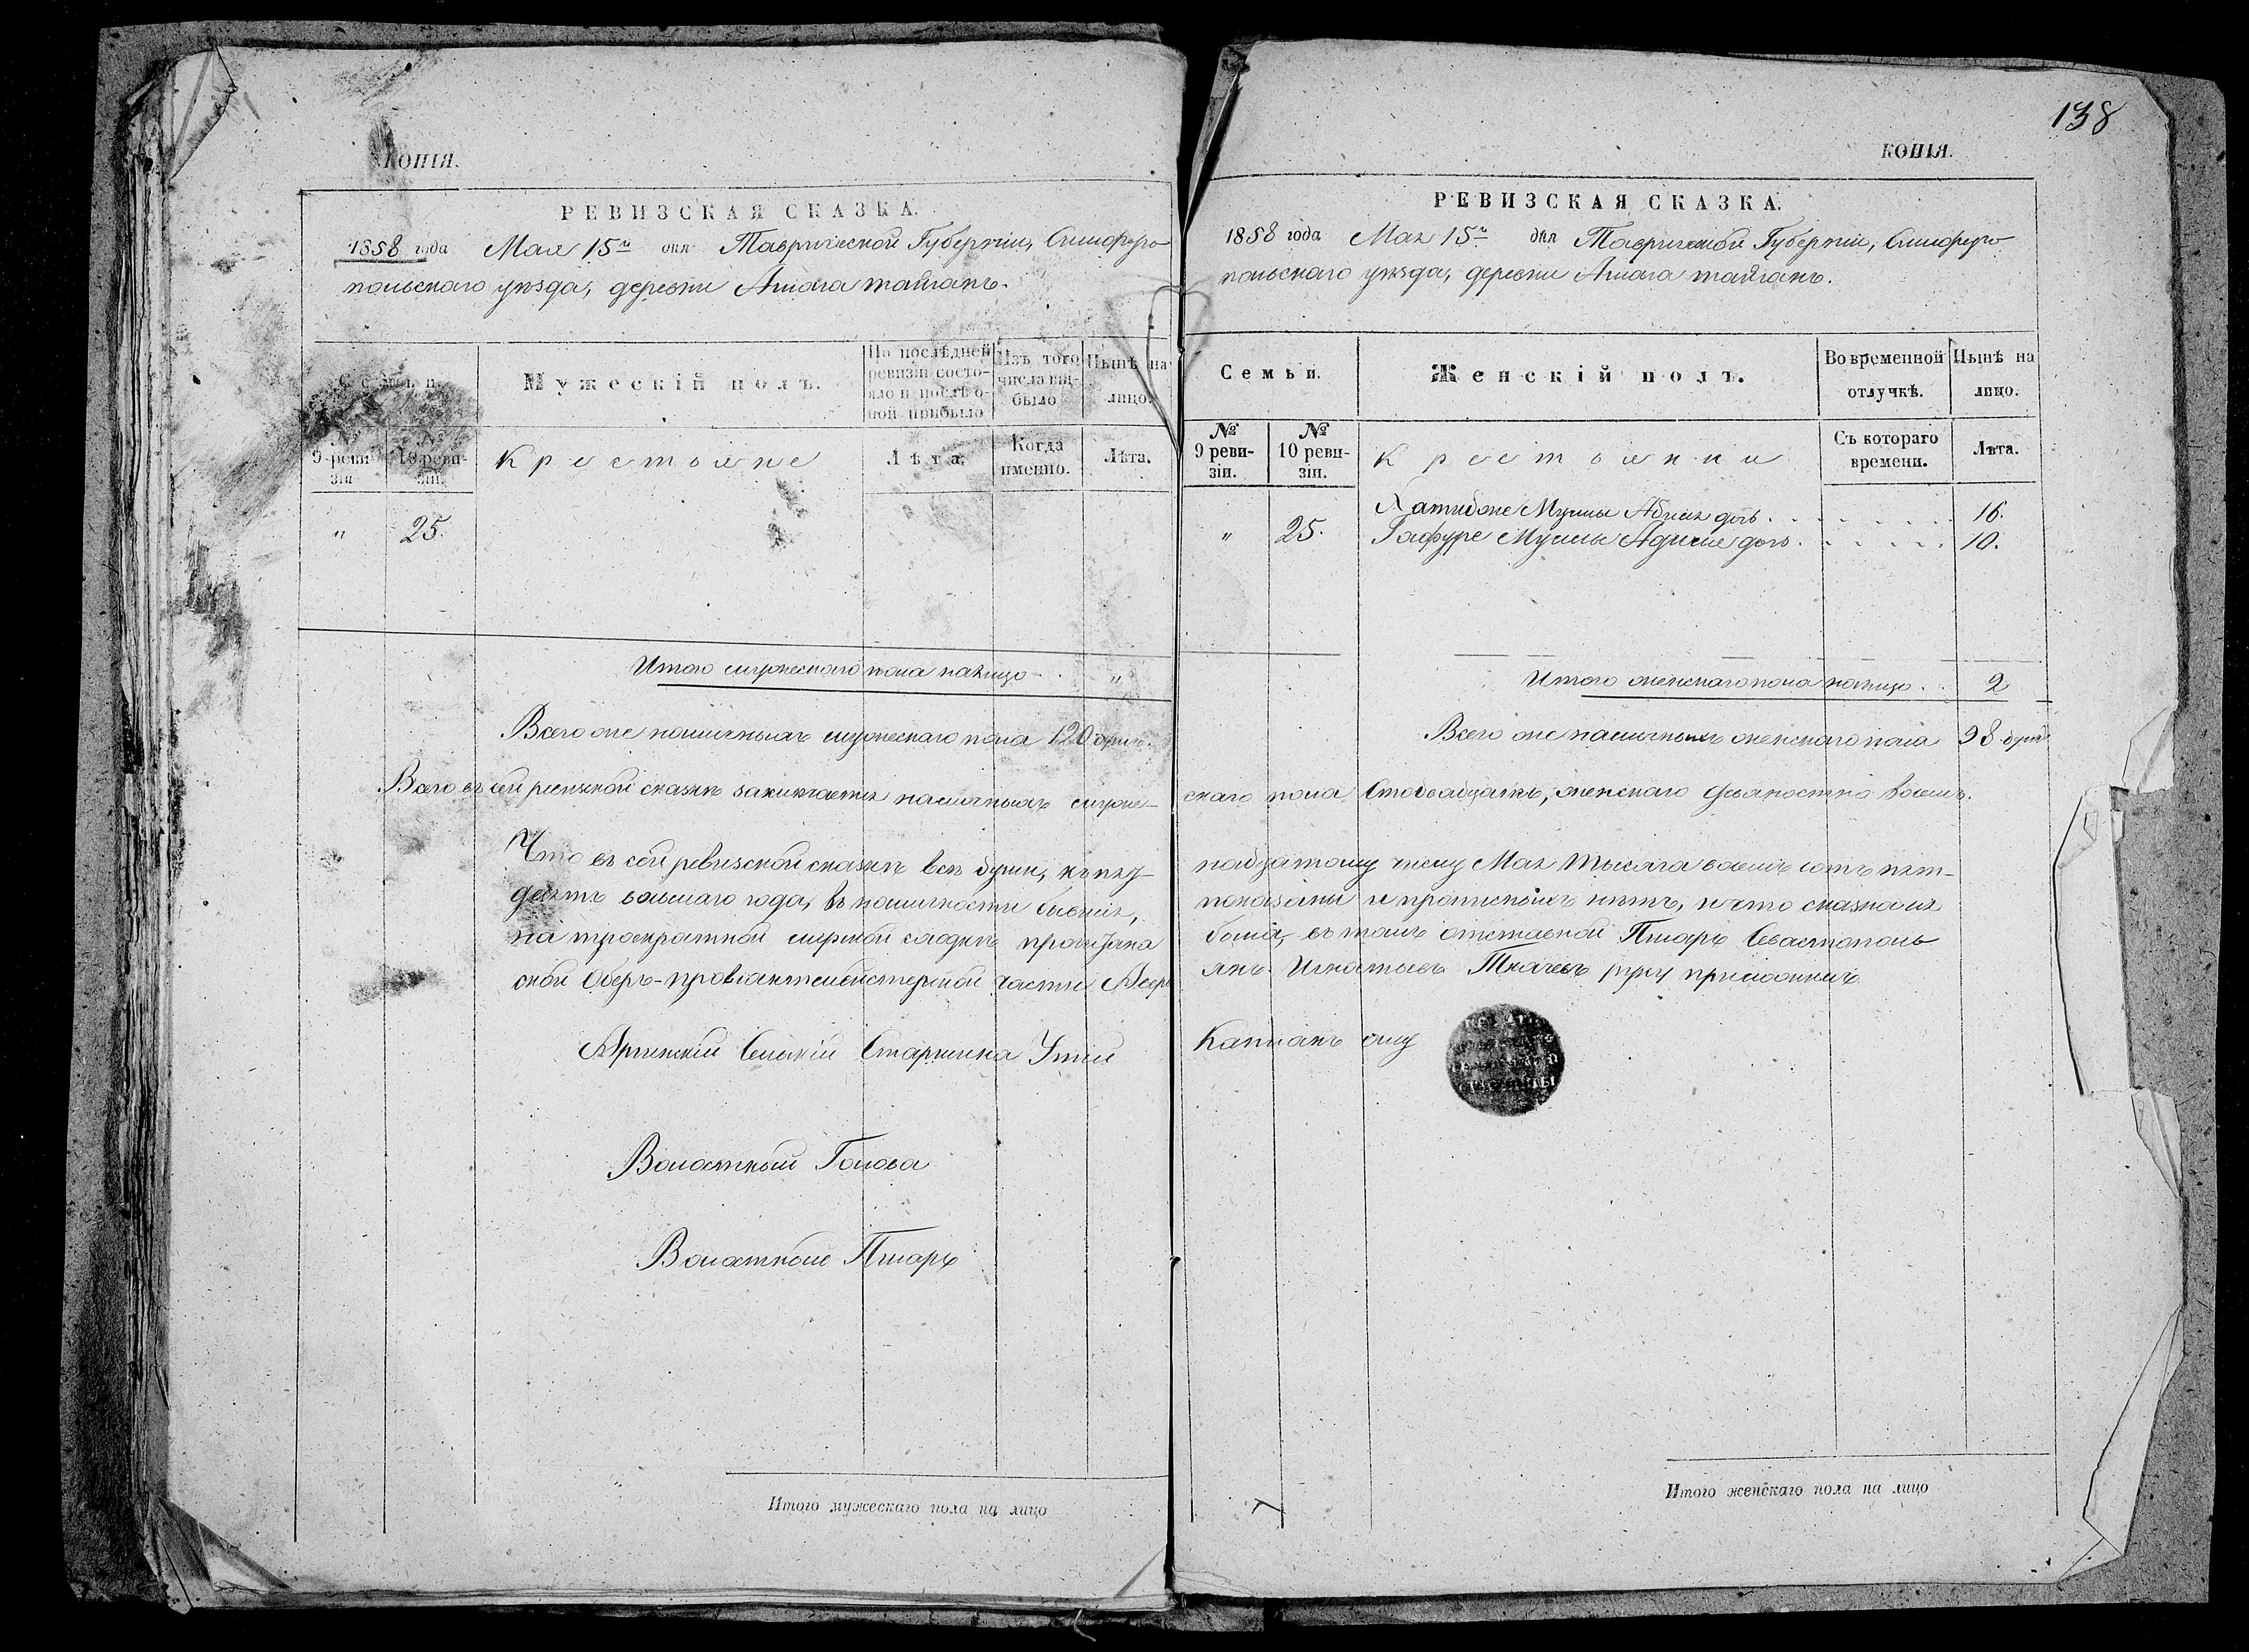 КОПІЯ.
РЕВИЗСКАЯ СКАЗКА.
1858 года Мая 15го дня Таврической Губерніи, Симферо-
польскаго уѣзда, деревни Ашага тайганъ.
Семьи.
Мужескій полъ.
По послѣдней ревизіи состо-яло и послѣ о-ной прибыло
Изъ того числа вы-было
Нынѣ на лицо.
№ 9 реви-зіи
№ 10 реви-зіи.
Крестьяне
Лѣта.
Когда именно.
Лѣта.
" 25.
Итого мужескаго пола налицо . . "
Всего же наличныхъ мужескаго пола 120 душъ.
Всего въ сей ревизкой сказкѣ заключается наличныхъ муже-
Что въ сей ревизской сказкѣ всѣ души, къ пят-
десятъ восьмаго года, въ наличности бывшія,
на троекратной мирской сходкѣ прочитана
ской Оберъ-провіантмейстерской части
Аргинскій Сельскій Старшина
Волостный Голова
Волостный Писарь
Итого мужескаго пола на лицо
138
КОПІЯ.
РЕВИЗСКАЯ СКАЗКА.
1858 года Мая 15го дня Таврической Губерніи, Симферо-
польскаго уѣзда, деревни Ашага тайганъ.
Семьи.
Женскій полъ.
Во временной отлучкѣ.
Нынѣ на лицо.
№ 9 реви-зіи.
№ 10 реви-зіи.
Крестьянки
Съ котораго времени.
Лѣта.
" 25.
Хатибже Муллы Абляя дочь . . . 16.
Гафуре Муллы Аджіе дочь . . . 10.
Итого женскаго пола налицо . . 2
Всего же наличныхъ женскаго пола 98 душъ
скаго пола Стодвадцать, женскаго девяносто восемь.
надцатому числу Мая тысяча восемь сотъ пять-
показаны и прописныхъ нѣтъ, и что сказка сія
была, въ томъ отставной Писарь Севастополь
Игнатьевъ Ткачевъ руку приложилъ.
Капланъ оглу
Итого женскаго пола на лицо